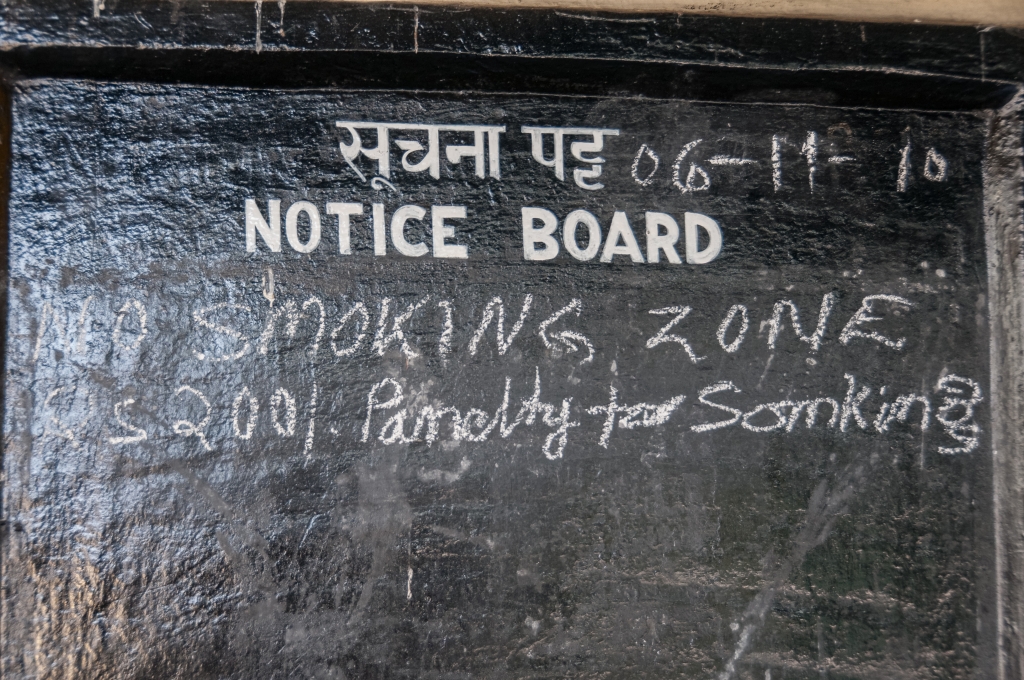 सूचना पट्ट 06-11-10
NOTICE BOARD
NO SMOKING ZONE
Rs 200/. Panelty for Somking